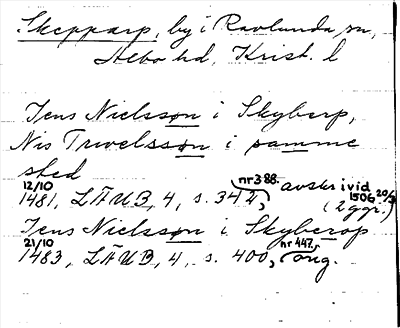 Skepparp, by i Ravlunda sn,
Albo hd, Krist. l
Jens Nielssøn i Skyberp,
Nis Trwelssøn i samme
sted
12/10 1481, LÄUB, 4, s. 342, nr 388. avskr i vid 1506 20/5 (2 ggr.)
Jens Nielssøn i Skyberop
21/10 1483, LÄUB, 4, s. 400, nr 447. orig.